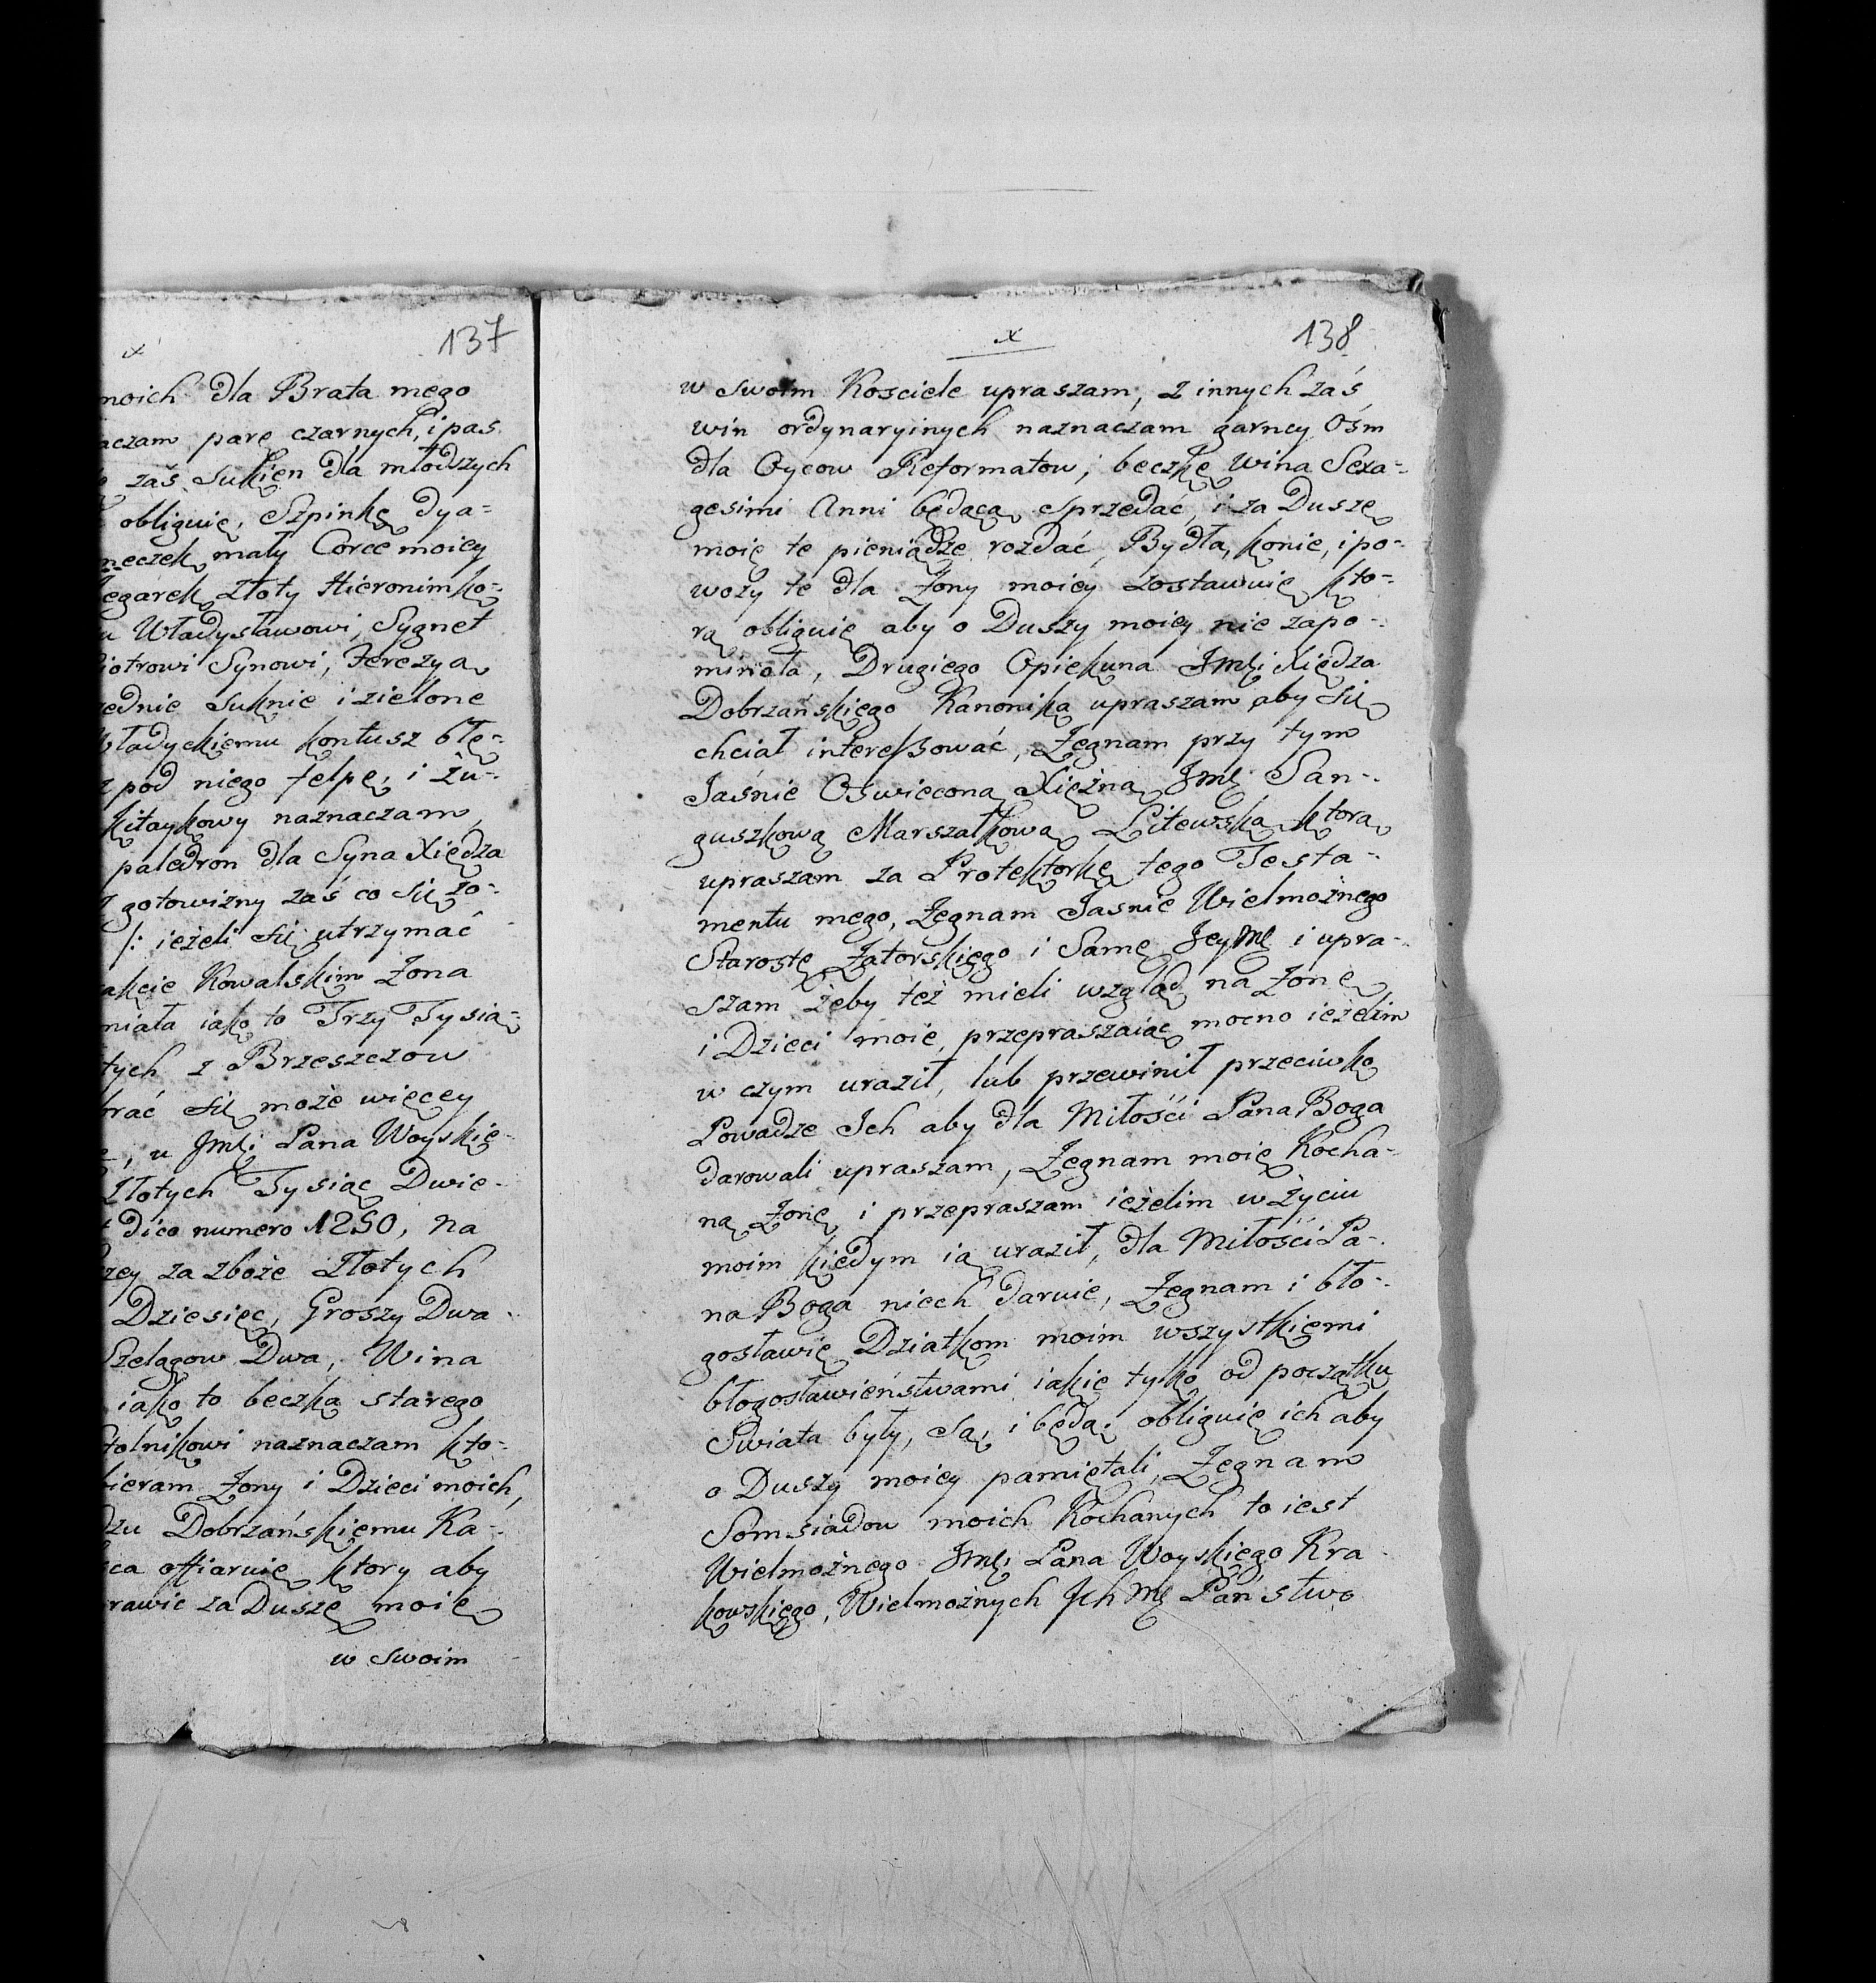 137
moich dla Brata mego
aczam parę czarnych, i pas
zaś Sukien dla młodszych
obliguię, Szpinkę dya=
neczek mały Corce moiey
egarek złoty Hieronimko=
u Władysławowi, Sygnet
iotrowi Synowi, Ferezya
ednie Suknie i zielone
ładyckiemu kontusz błę=
z pod niego felpę, i żu=
kitaykowy naznaczam,
paledron dla Syna Xiędza
gotowizny zaś co się zo=
/: ieżeli się utrzymać
akcie Kowalskim Żona
miała iako to Trzy Tysią=
tych z Brzeszczow
brać się może więcey
, u Jmci Pana Woyskie=
Złotych Tysiąc Dwie=
dico numero 1250, na
zey za zboże Złotych
Dziesięc, Groszy Dwa
Szelągow Dwa, Wina
iako to beczka starego
tolnikowi naznaczam kto=
bieram Żony i Dzieci moich,
dzu Dobrzańskiemu Ka=
ca offiaruię ktory aby
rawie za Duszę moię
w swoim
x 138
w Swoim Kosciele upraszam, z innych zaś
win ordynaryinych naznaczam garncy Ośm
dla Oycow Reformatow; beczkę Wina Sexa=
gesimi Anni będącą Sprzedać, i za Duszę
moię te pieniądze rozdać, Bydła, konie, i po=
wozy te dla Żony moiey zostawuię kto=
rą obliguię aby o Duszy moiey nie zapo=
minała, Drugiego Opiekuna Jmci Xiędza
Dobrzańskiego Kanonika upraszam aby się
chciał interessować, Żegnam przy tym
Jaśnie Oswiecona Xiężna Jmć San=
guszkową Marszałkową Litewską ktora
upraszam za Protektorkę tego Testa=
mentu mego, Żegnam Jasnie Wielmożnego
Starostę Zatorskiego i Samę JeyMć i upra=
szam żeby też mieli wzgląd na Żonę
i Dzieci moie, przepraszaiąc mocno ieżelim
w czym uraził, lub przewinił przeciwko
Powadze Ich aby dla Miłości Pana Boga
darowali upraszam, Żegnam moię Kocha=
ną Żonę i przepraszam ieżelim w życiu
moim kiedym ią uraził, dla Miłości Pa=
na Boga niech daruie, Żegnam i bło=
gosławię Dziatkom moim wszystkiemi
błogosławieństwami iakie tylko od początku
Swiata były, są, i będą, obliguię ich aby
o Duszy moiey pamiętali, Żegnam
Somsiadow moich Kochanych to iest
Wielmożnego Jmci Pana Woyskiego Kra=
kowskiego, Wielmożnych Ich Mć Państwo